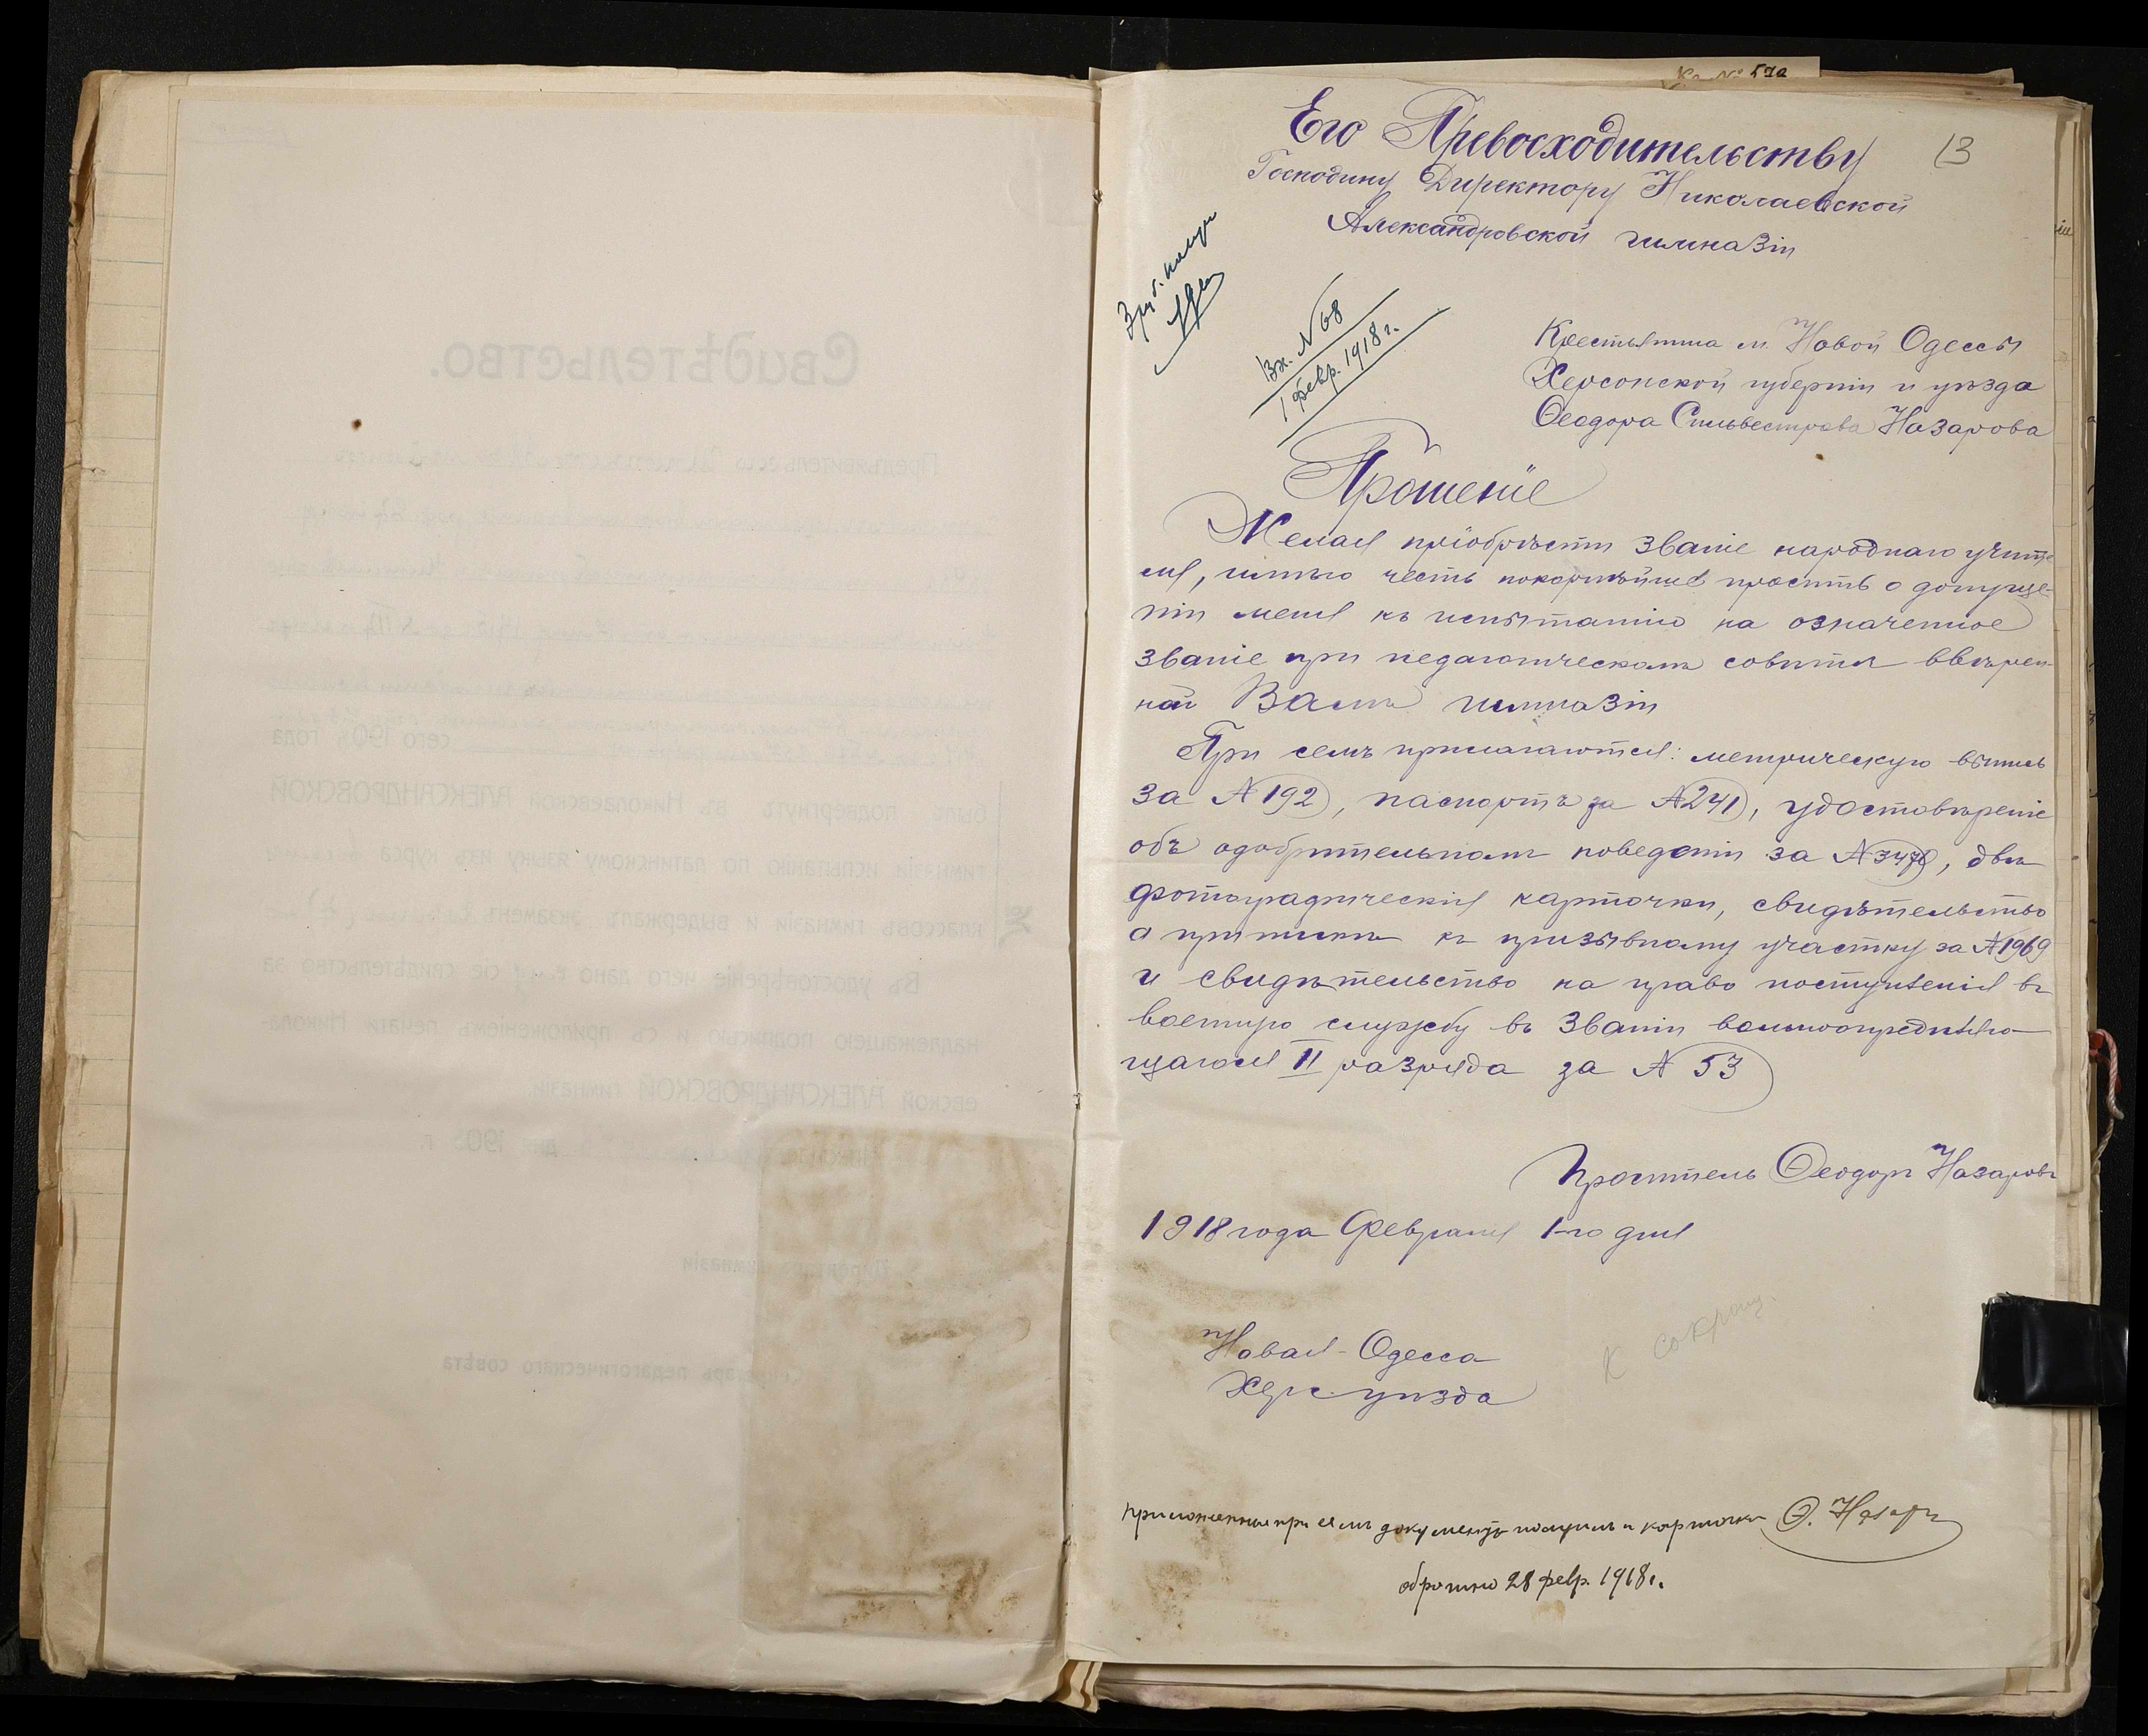 13
Его Превосходительству
Господину Директору Николаевской
Александровской гимназіи
Вх. № 68
1 февр. 1918 г.
Крестьянина м. Новой Одессы
Херсонской губерніи и уѣзда
Ѳеодора Сильвестрова Назарова
Прошеніе
Желая пріобрѣсти званіе народнаго учите-
ля, имѣю честь покорнѣйше просить о допуще-
ніи меня къ испытанію на означенное
званіе при педагогическомъ совѣтѣ ввѣрен-
ной Вамъ гимназіи
При семъ прилагаются: метрическую выпись
за № 192, паспортъ за № 241, удостовѣреніе
объ одобрительномъ поведеніи за № 3478, двѣ
фотографическія карточки, свидѣтельство
о припискѣ къ призывному участку за № 1969
и свидѣтельство на право поступленія въ
военную службу въ званіи вольноопредѣляю-
щагося II разряда за № 53
Проситель Ѳеодоръ Назаровъ
1918 года Февраля 1-го дня
Новая-Одесса
Херс. уѣзда
К
приложенные при семъ документы получилъ и карточки Ѳ. Назаръ
обратно 28 февр. 1918 г.
Свидѣтельство.
сего 190 года
былъ подвергнутъ въ Николаевской АЛЕКСАНДРОВСКОЙ
гимназіи испытанію по латинскому языку изъ курса
классовъ гимназіи и выдержалъ экзаменъ
Въ удостовѣреніе чего дано сіе свидѣтельство за
надлежащею подписью и съ приложеніемъ печати Никола-
евской АЛЕКСАНДРОВСКОЙ гимназіи.
дня 190 г.
Директоръ гимназіи
Секретарь педагогическаго совѣта